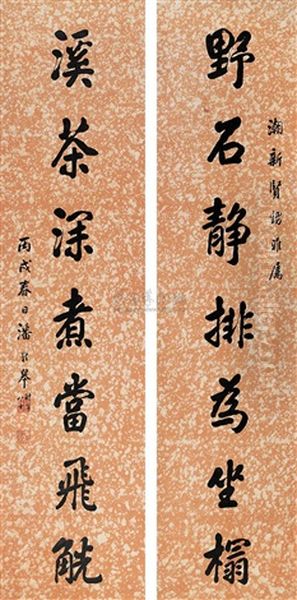 野石静排為坐榻
溪茶深煮當飛觥
瀚新賢甥雅屬
丙戌春日潘齡皋